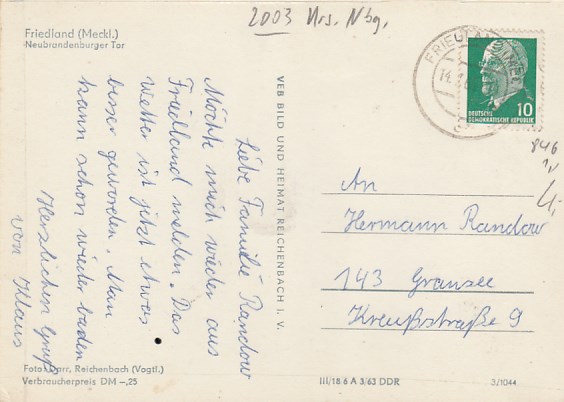 2003 Krs. Nbg.
Friedland (Meckl.)
Neubrandenburger Tor
Liebe Familie Randow
Möchte mich wieder aus
Friedland melden. Das
wetter ist jetzt etwas
besser geworden. Man
kann schon wieder baden
Herzlichen Gruß
von Klaus
Foto: Darr, Reichenbach (Vogtl.)
Verbraucherpreis DM –,25
VEB BILD UND HEIMAT REICHENBACH I. V.
FRIEDLAND
DEUTSCHE
DEMOKRATISCHE REPUBLIK
10
846
An
Hermann Randow
143 Gransee
Kreußstraße 9
III/18 6 A 3/63 DDR
3/1044